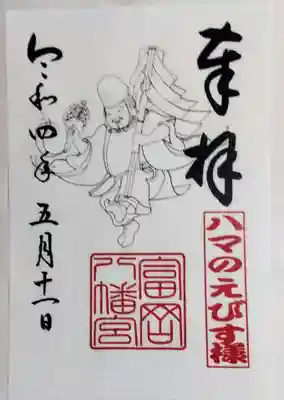 奉拝
ハマのえびす様
富岡
八幡宮
令和四年 五月十一日